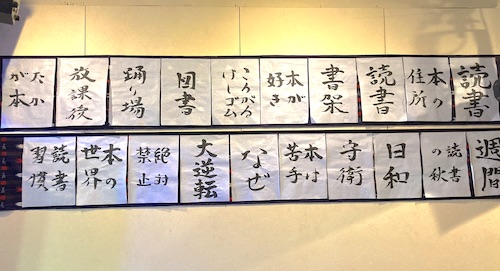 読書
本の
住所
読書
書架
本が
好き
ころがる
けしゴム
図書
踊り場
放課後
たか
が本
週間
読書
の秋
日和
守衛
本は
苦手
なぜ
大逆転
絶対
禁止
本の
世界
読書
習慣